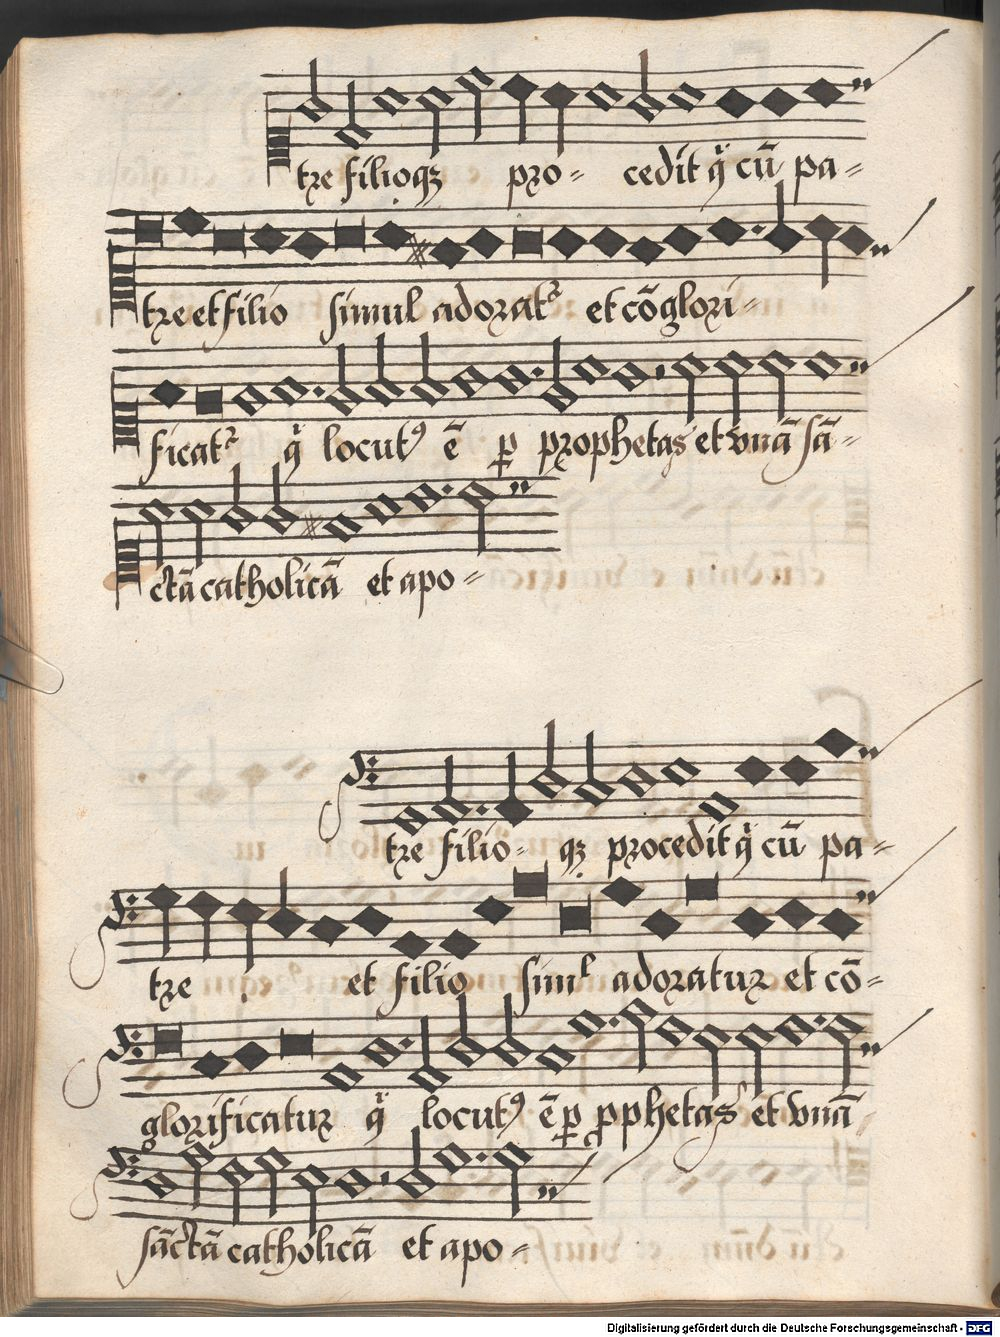 tre filioqꝫ pro- cedit q̃ cũ pa-
tre et filio simul adorat᷑ et cõglori-
ficat᷑ q̃ locutꝰ ẽ ꝑ prophetas et vnã sã-
ctã catholicã et apo-
tre filio- qꝫ procedit q̃ cũ pa-
tre et filio simł adoratur et cõ-
glorificatur q̃ locutꝰ ẽ ꝑ pphetas et vnã
sãctã catholicã et apo-
Digitalisierung gefördert durch die Deutsche Forschungsgemeinschaft - DFG